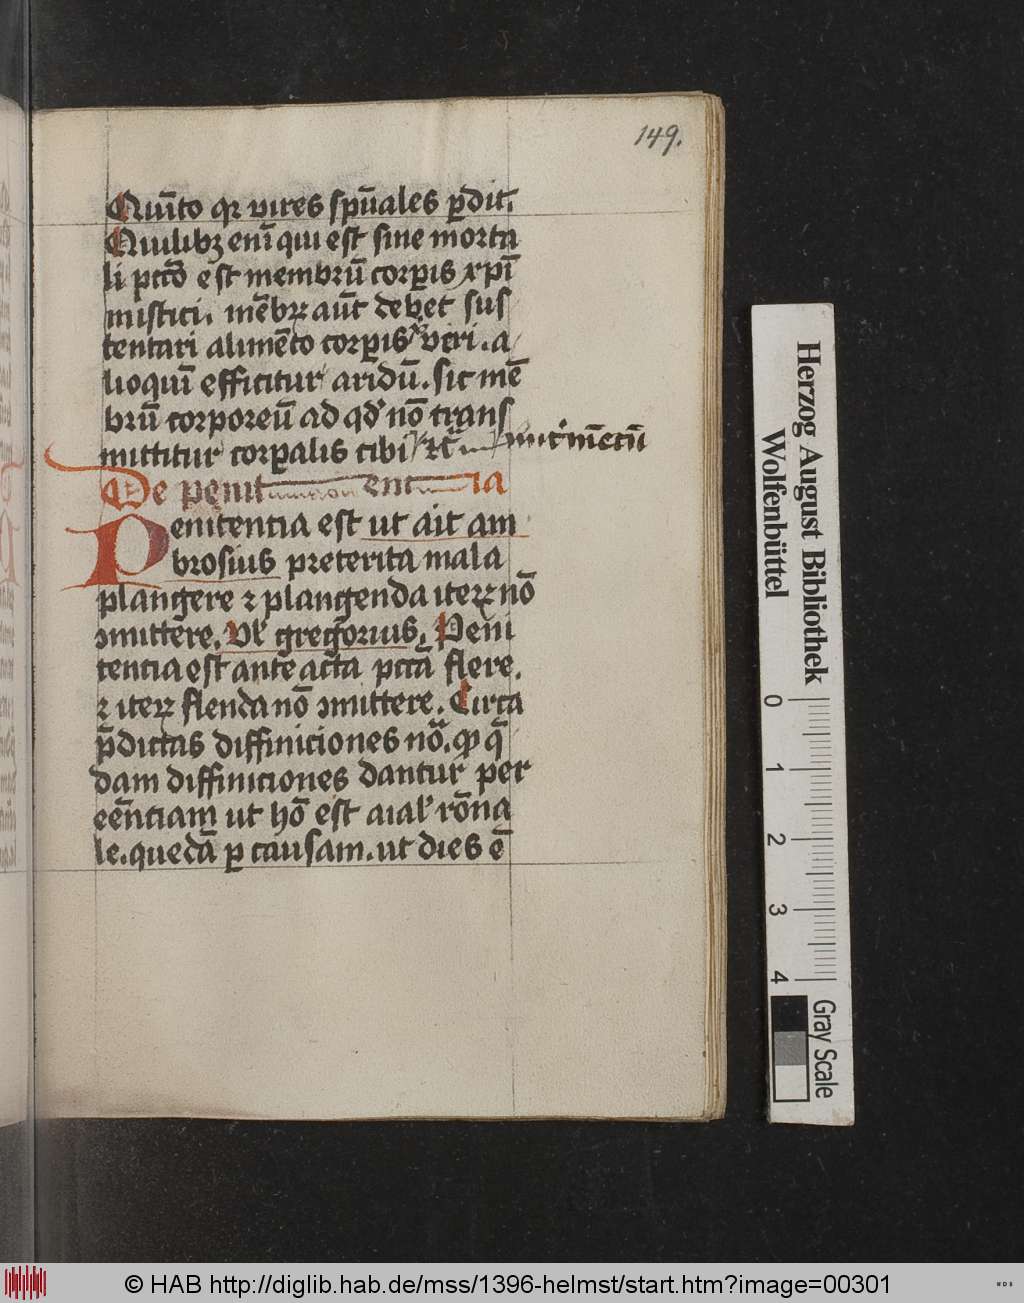 149.
Quīto qꝛ vires spūales ꝑdit.
Quilibꝫ enī qui est sine morta
li pctō est membrū corꝑis xpī
mistici. mēbꝝ aūt debet sus
tentari alimēto corꝑis veri. a
lioquī efficitur aridū. sic mē
brū corporeū ad qđ nō trans
mittitur corꝑalis cibi
De penitentia
Penitentia est ut ait am
brosius preterita mala
plangere ⁊ plangenda iteꝝ nō
ↄmittere. Vł gregorius. Peni
tentia est ante acta pctā flere.
⁊ iteꝝ flenda nō ↄmittere. Circa
p̄dictas diffiniciones nō. ꝙ q̄
dam diffiniciones dantur per
eēntiam ut hō est aial rōna
le. quedā ꝑ causam. ut dies ē
Herzog August Bibliothek
Wolfenbüttel
0 1 2 3 4
Gray Scale
© HAB http://diglib.hab.de/mss/1396-helmst/start.htm?image=00301